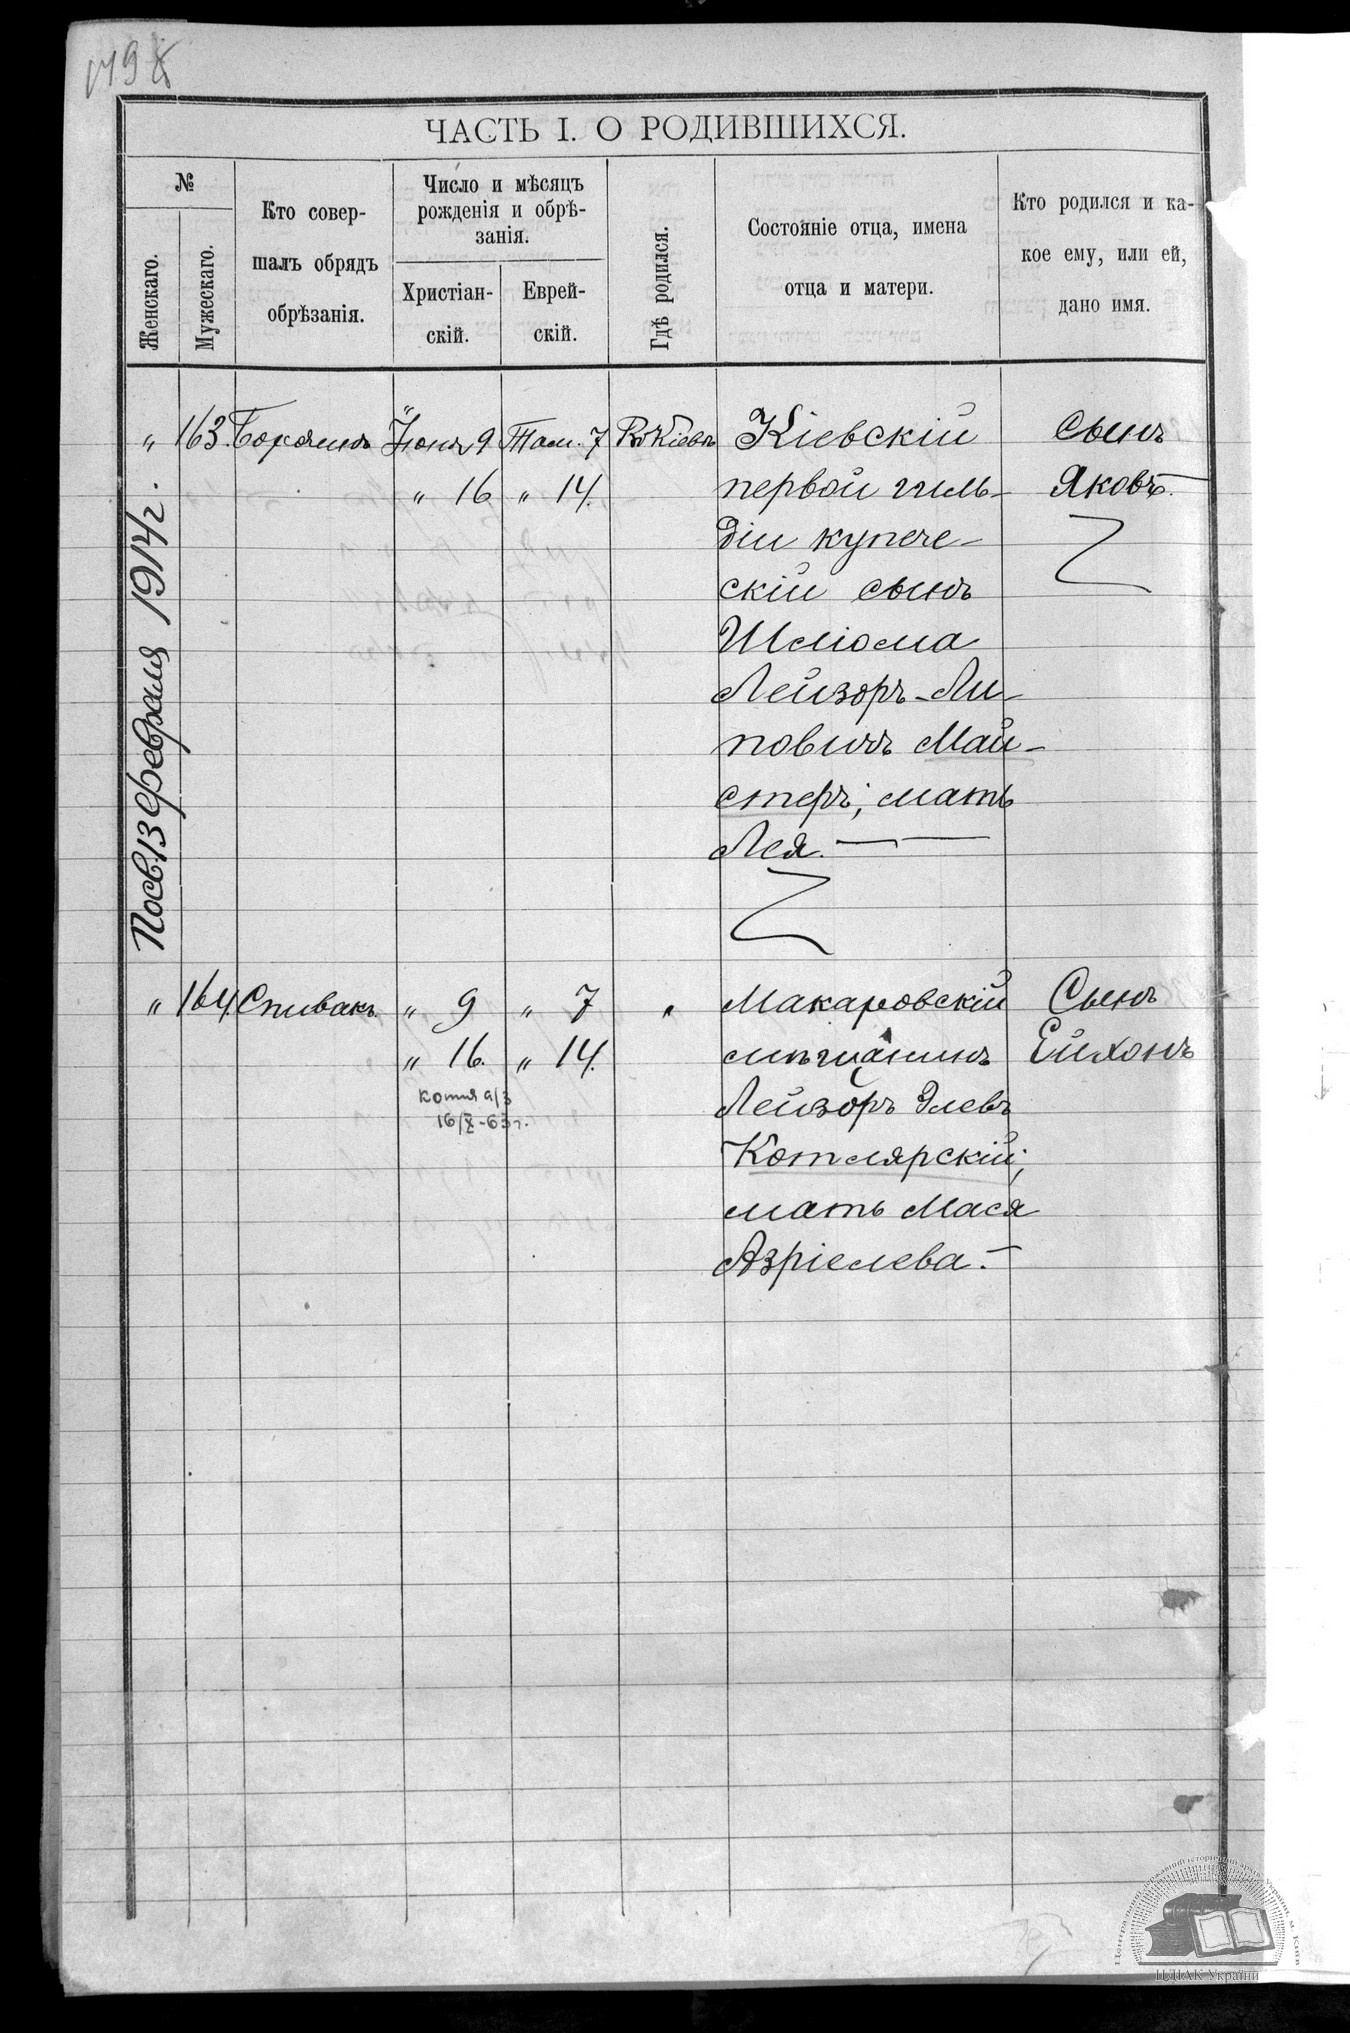 ЧАСТЬ I. О РОДИВШИХСЯ.
№
Женскаго.
Мужескаго.
Кто совер-
шалъ обрядъ
обрѣзанія.
Число и мѣсяцъ
рожденія и обрѣ-
занія.
Христіан-
скій.
Еврей-
скій.
Гдѣ родился.
Состояніе отца, имена
отца и матери.
Кто родился и ка-
кое ему, или ей,
дано имя.
Посв. 13 февраля 1914 г.
„ 163.
Іюня 9
„ 16
Там. 7
„ 14.
Въ Кіевѣ
Кіевскій
первой гиль-
діи купече-
скій сынъ
Шліома
Лейзоръ-Ли-
повичъ Май-
стеръ; мать
Лея.
сынъ
Яковъ.
„ 164. Спивакъ.
„ 9
„ 16.
копия
16/X-63 г.
„ 7
„ 14.
„
Макаровскій
мѣщанинъ
Лейзоръ Элевъ
Котлярскій;
мать Мася
Азріелева.
Сынъ
Ейхонъ
ЦДІАК України